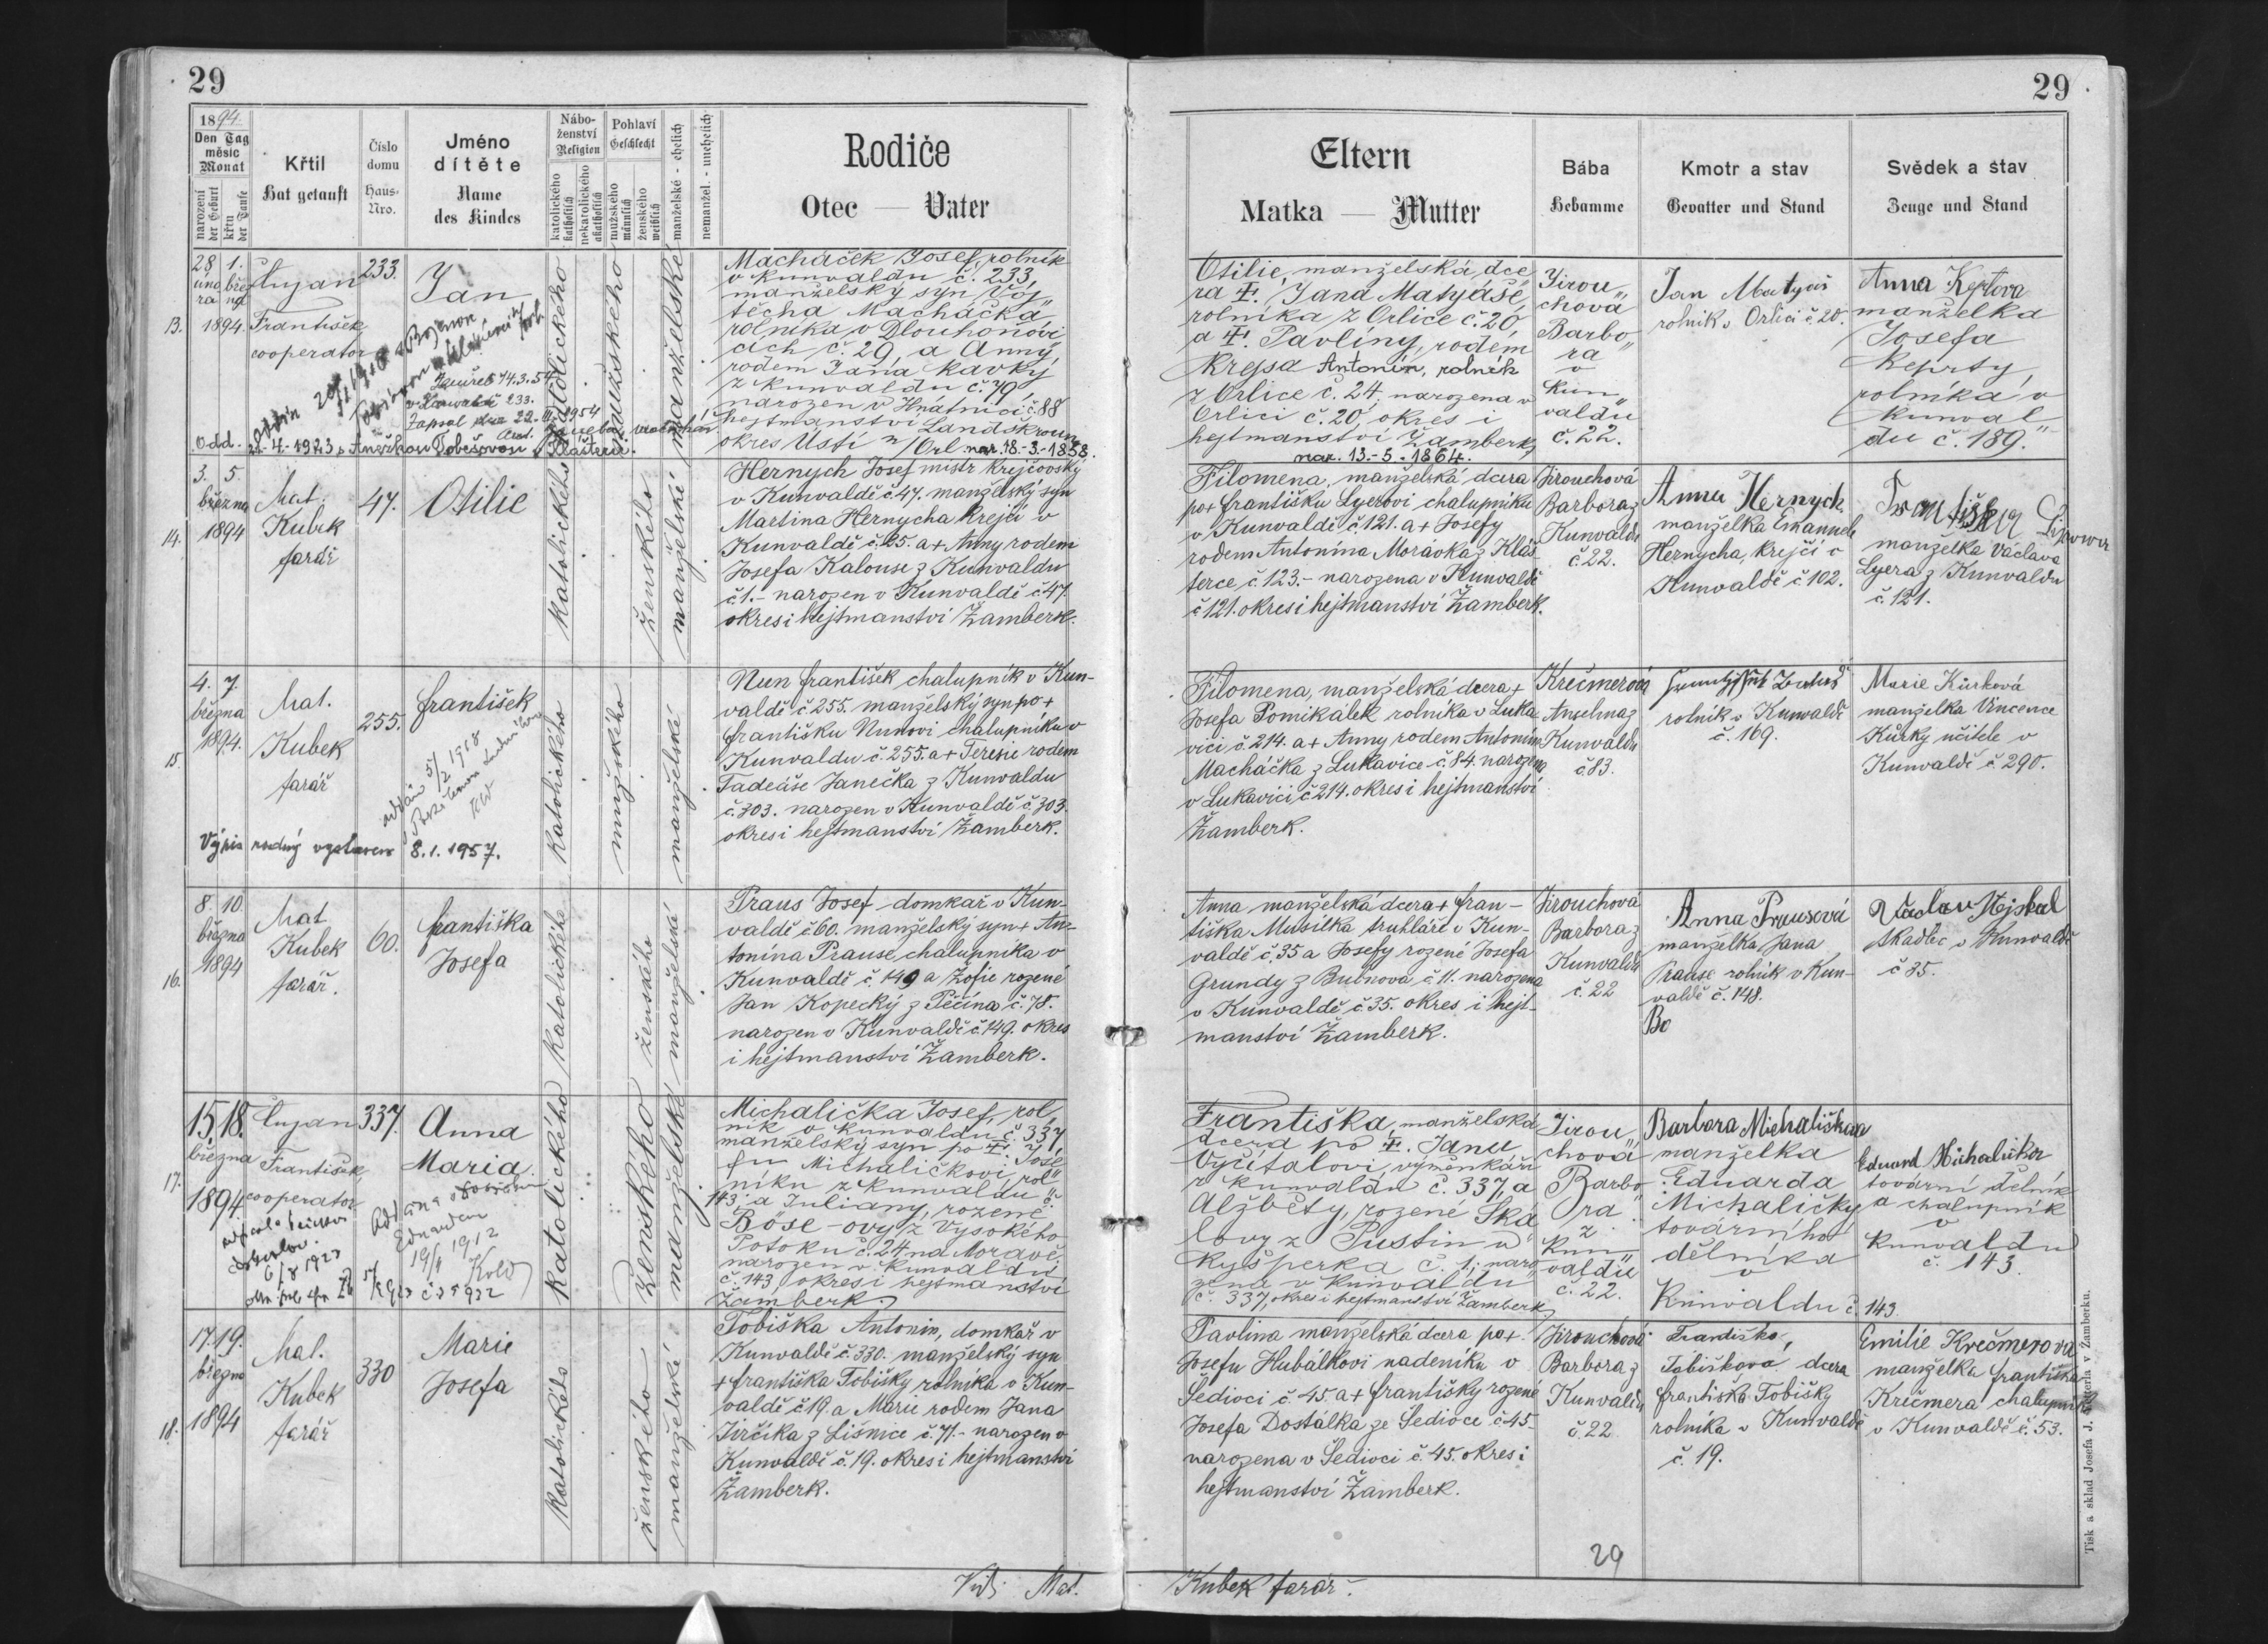 29
29
1894.
Den Tag
měsíc
Monat
narození
der Geburt
křtu
der Taufe
Křtil
Hat getauft
Číslo
domu
Haus-
Nro.
Jméno
dítěte
Name
des Kindes
Nábo-
ženství
Religion
katolického
katholisch
nekatolického
akatholisch
Pohlaví
Geschlecht
mužského
männlich
ženského
weiblich
manželské - ehelich
nemanžel. - unehelich
Rodiče
Otec — Vater
Eltern
Matka — Mutter
Bába
Hebamme
Kmotr a stav
Gevatter und Stand
Svědek a stav
Zeuge und Stand
13.
28 1.
úno bře
ra zna
1894.
Čujan
František
cooperator
233.
Jan
Zemřel 14.3.54
v Kunvaldě 233.
Zapsal dne 22.III.1954
odd. 22.-4.-1923 s Anežkou Tobešovou v Klášterci.
katolického
mužského
manželské
Macháček Josef, rolník
v Kunvaldu č. 233,
manželský syn Voj
těcha Macháčka
rolníka v Dlouhoňovi
cích č. 29, a Anny,
rodem Jana Kavky
z Kunvaldu č. 79,
narozen v Hnátnici č. 88
hejtmanství Landškroun
okres Ústí n/Orl. nar. 18.-3.-1858.
Otilie, manželská dce
ra †. Jana Matyáše
rolníka z Orlice č. 20,
a †. Pavlíny, rodem
Krejsa Antonín, rolník
z Orlice č. 24; narozena v
Orlici č. 20, okres i
hejtmanství Žamberk,
nar. 13.-5.-1864.
Jirou
chová
Barbo
ra
v
Kun
valdu
č. 22.
Jan Matyáš
rolník v Orlici č 20.
Anna Keprtova
manželka
Josefa
Keprty,
rolníka v
Kunval
du č. 189.
14.
3. 5.
března
1894
Mat.
Kubek
farář
47.
Otilie
katolického
ženského
manželské
Hernych Josef mistr krejčovský
v Kunvaldě č 47. manželský syn
Martina Hernycha krejčí v
Kunvaldě č. 25. a + Anny rodem
Josefa Kalouse z Kunvaldu
č 1.- narozen v Kunvaldě č 47.
okres i hejtmanství Žamberk.
Filomena, manželská dcera
po + františku Lyerovi chalupníku
v Kunvaldě č 121. a + Josefy
rodem Antonína Morávka z Kláš-
terce, č 123.- narozena v Kunvaldě
č 121. okres i hejtmanství Žamberk.
Jirouchová
Barbora z
Kunvaldu
č 22.
Anna Hernych
manželka Emanuele
Hernycha, krejčí v
Kunvaldě č 102.
Františka
manželka Václava
Lyera z Kunvaldu
č. 121.
15.
4. 7.
března
1894.
Mat.
Kubek
farář
255.
františek
oddán 5/2 1918
Výpis rodný vystaven 8.1.1957.
katolického
mužského
manželské
Nun františek chalupník v Kun-
valdě č 255. manželský syn po +
františku Nunovi chalupníku v
Kunvaldu č. 255. a + Terezie rodem
Tadeáše Janečka z Kunvaldu
č. 303. narozen v Kunvaldě č. 303.
okres i hejtmanství Žamberk.
Filomena, manželská dcera +
Josefa Pomikálek rolníka v Luka-
vici č. 214. a + Anny rodem Antonína
Macháčka z Lukavice č. 84. narozena
v Lukavici č 214. okres i hejtmanství
Žamberk.
Krečmerová
Anselma z
Kunvaldu
č. 83.
rolník v Kunvaldě
č. 169.
Marie Kůrková
manželka Vincence
Kůrky učitele v
Kunvaldě č 290.
16.
8. 10.
března
1894
Mat
Kubek
farář.
60.
františka
Josefa
katolického
ženského
manželské
Praus Josef domkař v Kun-
valdě č 60. manželský syn + An-
tonína Prause chalupníka v
Kunvaldě č. 149 a Žofie rozené
Jan Kopecký z Pěčína č. 78.
narozen v Kunvaldě č 149. okres
i hejtmanství Žamberk.
Anna manželská dcera + fran-
tiška Musílka truhláře v Kun-
valdě č. 35 a Josefy rozené Josefa
Grundy z Bubnova č. 11. narozena
v Kunvaldě č 35. okres i hejt-
manství Žamberk.
Jirouchová
Barbora z
Kunvaldu
č. 22
Anna Prausová
manželka Jana
Prause rolník v Kun-
valdě č. 148.
Bo
Václav Nejskal
tkadlec v Kunvaldě
č 35.
17.
15. 18.
března
1894.
Čujan
František,
cooperator
6/8 1923
337.
Anna
Maria.
Oddána s
Eduardem
19/4 1912
katolického
ženského
manželské
Michalička Josef, rol
ník v Kunvaldu č. 337,
manželský syn po †. Jose
fu Michaličkovi, rol
níku z Kunvaldu č.
143; a Juliany, rozené
Böse-ovy z Vysokého
Potoku č. 24 na Moravě,
narozen v Kunvaldu
č. 143, okres i hejtmanství
Žamberk
Františka, manželská
dcera po †. Janu
Vyčítalovi, výměnkáři
z Kunvaldu č. 337, a
Alžběty, rozené Ská
lovy z Pustin u
Kyšperka č. 1; naro
zena v Kunvaldu
č. 337, okres i hejtmanství Žamberk
Jirou
chová
Barbo
ra
z
Kun
valdu
č. 22.
Barbora Michaličkova
manželka
Eduarda
Michaličky
továrního
dělníka
v
Kunvaldu č. 143.
Eduard Michalička
tovární dělník
a chalupník
v
Kunvaldu
č. 143.
18.
17. 19.
března
1894
Mat.
Kubek
farář
330
Marie
Josefa
katolického
ženského
manželské
Tobiška Antonin, domkař v
Kunvaldě č. 330. manželský syn
+ františka Tobišky rolníka v Kun-
valdě č 19. a Marie rodem Jana
Jirčíka z Lišnice č. 71.- narozen v
Kunvaldě č. 19. okres i hejtmanství
Žamberk.
Pavlina manželská dcera po +
Josefu Hubálkovi nadeníku v
Šedivci č. 45. a + františky rozené
Josefa Dostálka ze Šedivce č. 45-
narozena v Šedivci č. 45. okres i
hejtmanství Žamberk.
Jirouchová
Barbora z
Kunvaldu
č. 22
Františka
Tobišková, dcera
františka Tobišky
rolníka v Kunvaldě
č. 19.
Emilie Krečmerova
manželka františka
Krečmera chalupníka
v Kunvaldě č. 53.
29
Vidi Mat. Kubek farář.
Tisk a sklad Josefa J. v Žamberku.